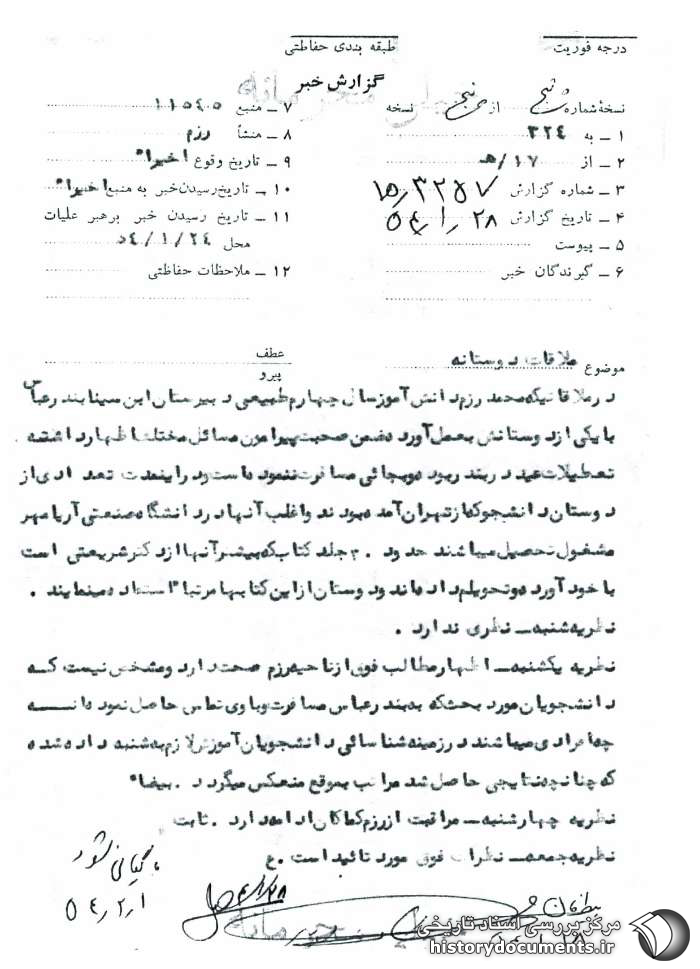 درجه فوریت
طبقه بندی حفاظتی
گزارش خبر
نسخهٔ شماره پنج از پنج نسخه
۱ ـ به ۳۲۴
۲ ـ از ۱۷/هـ
۳ ـ شماره گزارش
۴ ـ تاریخ گزارش ۵۴٫۱٫۲۸
۵ ـ پیوست
۶ ـ گیرندگان خبر
۷ ـ منبع ۱۱۵۴۰۵
۸ ـ منشأ رزم
۹ ـ تاریخ وقوع اخیرا"
۱۰ ـ تاریخ رسیدن خبر به منبع اخیرا"
۱۱ ـ تاریخ رسیدن خبر برهبر عملیات
محل ۵۴/۱/۲۴
۱۲ ـ ملاحظات حفاظتی
موضوع ملاقات دوستانه
عطف
پیرو
در ملاقاتیکه محمد رزم دانش آموز سال چهارم طبیعی دبیرستان ابن سینا بندرعباس
با یکی از دوستانش بعمل آورده ضمن صحبت پیرامون مسائل مختلف اظهار داشته
تعطیلات عید در بندر بوده و بجائی مسافرت ننموده است و در اینمدت تعدادی از
دوستان دانشجو که از تهران آمده بودند و اغلب آنها در دانشگاه صنعتی آریامهر
مشغول تحصیل میباشند حدود جلد کتاب که بیشتر آنها از دکتر شریعتی است
با خود آورده و تحویلم داده اند و دوستان از این کتابها مرتبا" استفاده مینمایند .
نظریه شنبه ـ نظری ندارد .
نظریه یکشنبه ـ اظهار مطالب فوق از ناحیه رزم صحت دارد و مشخص نیست که
دانشجویان مورد بحث که به بندرعباس مسافرت و با وی تماس حاصل نموده اند
چه افرادی میباشند در زمینه شناسائی دانشجویان آموزش لازم به شنبه داده شده
که چنانچه نتایجی حاصل شد مراتب بموقع منعکس میگردد . بیضا"
نظریه چهارشنبه ـ مراقبت از رزم کماکان ادامه دارد . ثابت
نظریه جمعه ـ نظرات فوق مورد تائید است . ع
بایگانی شود
۵۴٫۲٫۱
مرکز بررسی اسناد تاریخی
historydocuments.ir